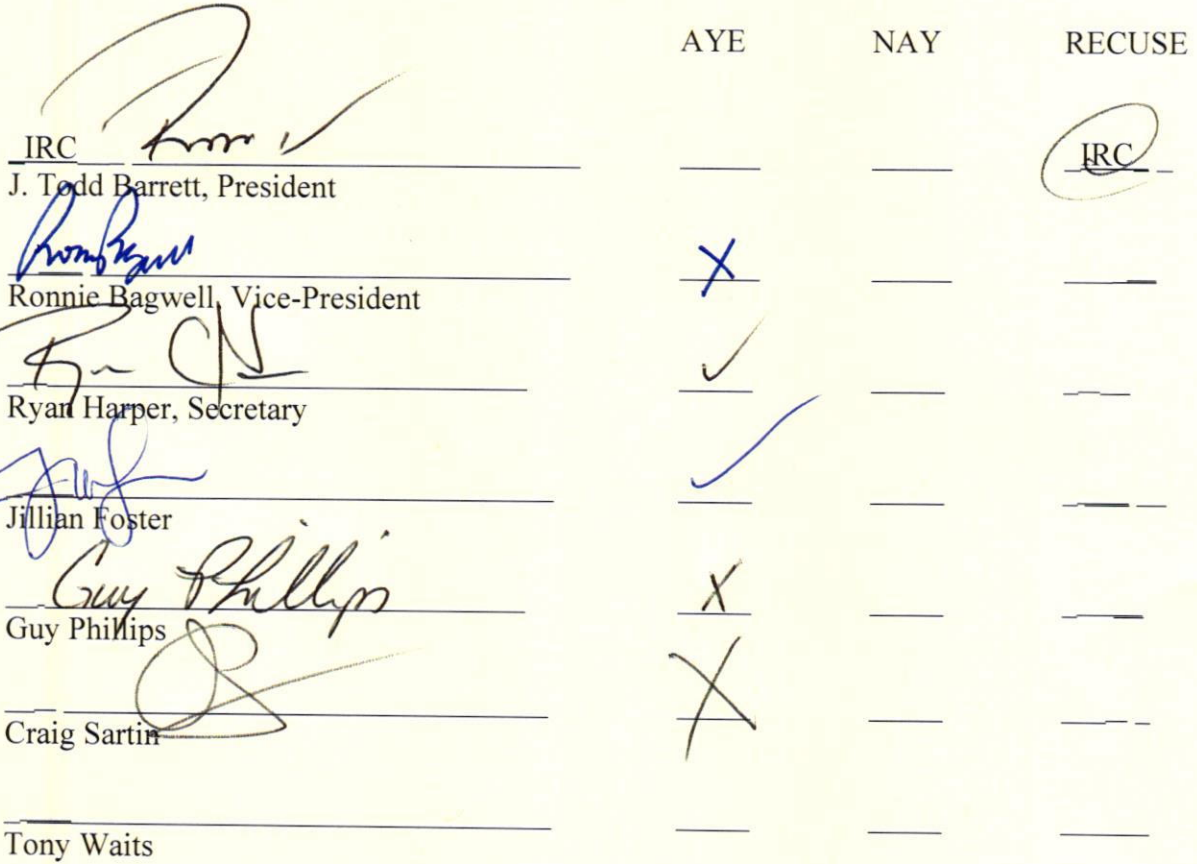 AYE NAY RECUSE
IRC IRC
J. Todd Barrett, President
X
Ronnie Bagwell, Vice-President
✓
Ryan Harper, Secretary
✓
Jillian Foster
Guy Phillips X
Guy Phillips
X
Craig Sartin
Tony Waits